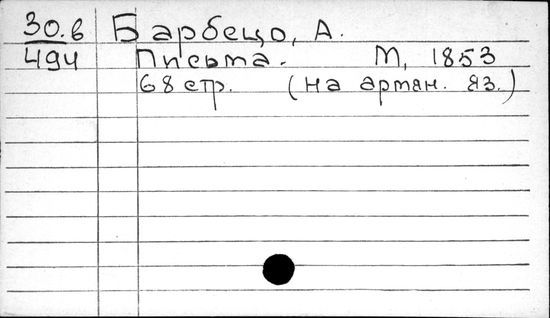 30.б Барбецо, А.
494 Письма. М, 1853
68 стр. (на армян. яз.)